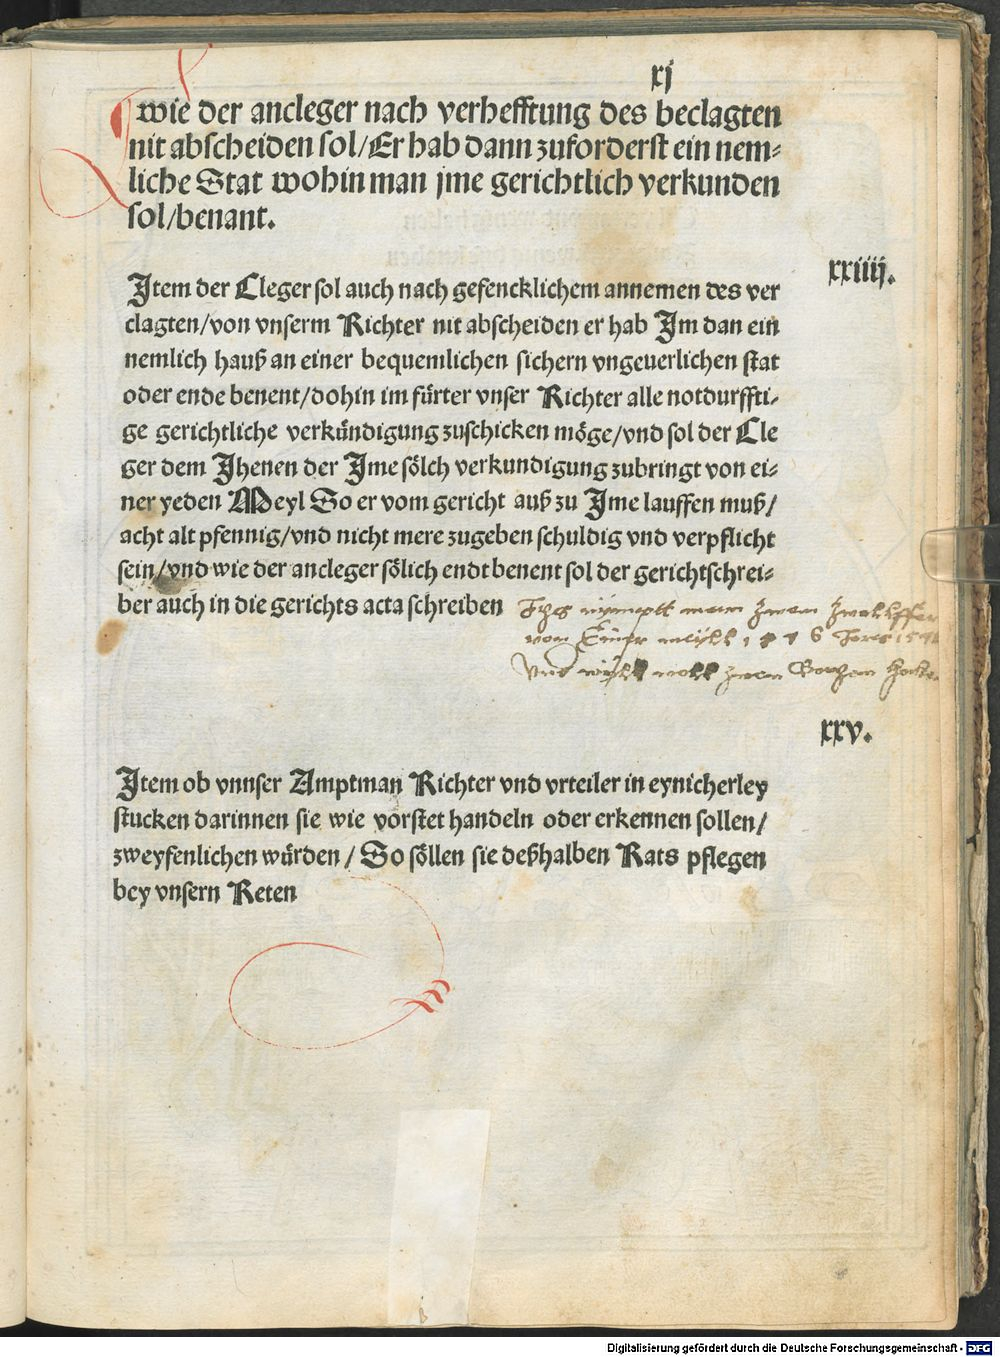 xj
wie der ancleger nach verhefftung des beclagten
nit abscheiden sol/Er hab dann zuforderst ein nem⸗
liche Stat wohin man jme gerichtlich verkunden
sol/benant.
xxiiij.
Item der Cleger sol auch nach gefencklichem annemen des ver
clagten/von vnserm Richter nit abscheiden er hab Im dan ein
nemlich hauß an einer bequemlichen sichern vngeuerlichen stat
oder ende benent/dohin im fürter vnser Richter alle notdurffti⸗
ge gerichtliche verkündigung zuschicken möge/vnd sol der Cle
ger dem Ihenen der Ime sölch verkundigung zubringt von ei⸗
ner yeden Meyl So er vom gericht auß zu Ime lauffen muß/
acht alt pfennig/vnd nicht mere zugeben schuldig vnd verpflicht
sein/vnd wie der ancleger sölich endt benent sol der gerichtschrei⸗
ber auch in die gerichts acta schreiben
nympt man zwen
von Einer meyll
Vnd woll zwen
xxv.
Item ob vnnser Amptman Richter vnd vrteiler in eynicherley
stucken darinnen sie wie vorstet handeln oder erkennen sollen/
zweyfenlichen würden/ So söllen sie deßhalben Rats pflegen
bey vnsern Reten
Digitalisierung gefördert durch die Deutsche Forschungsgemeinschaft - DFG